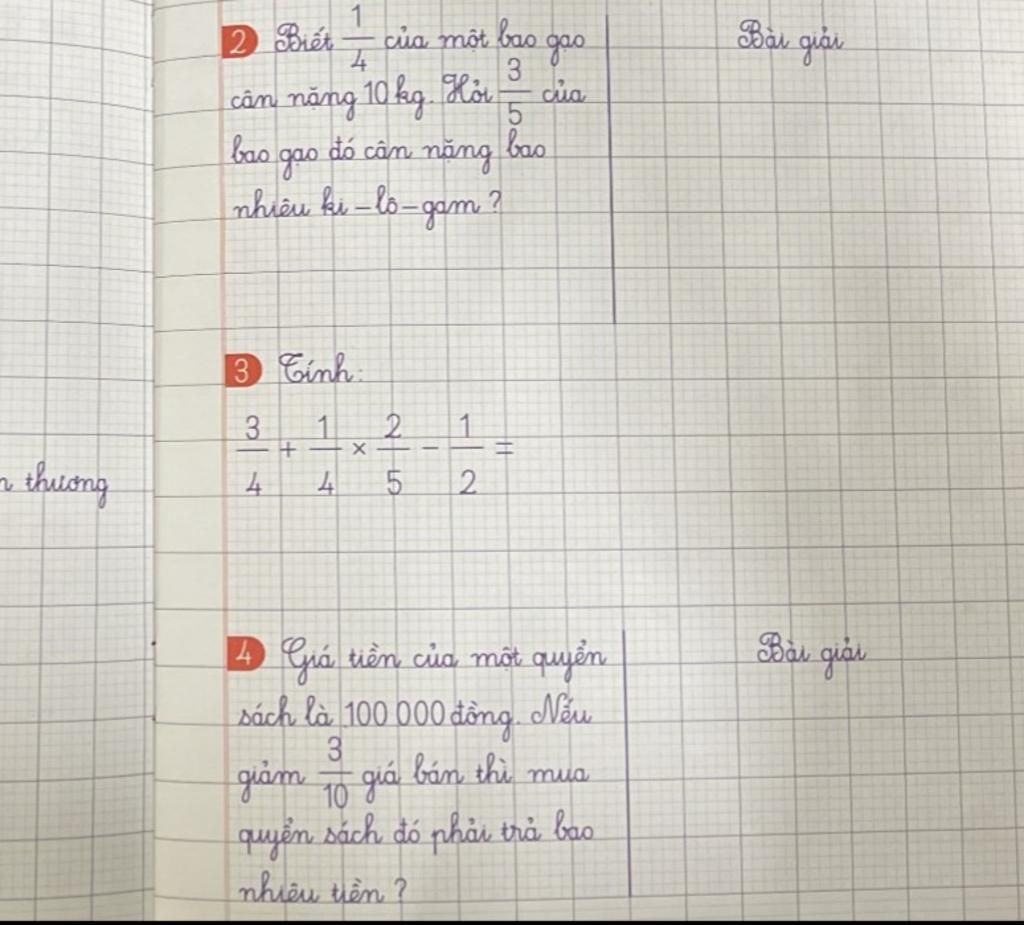 2 Biết 1/4 của một bao gạo
cân nặng 10 kg. Hỏi 3/5 của
bao gạo đó cân nặng bao
nhiêu ki-lô-gam?
Bài giải
3 Tính:
3/4 + 1/4 × 2/5 - 1/2 =
thương
4 Giá tiền của một quyển
sách là 100 000 đồng. Nếu
giảm 3/10 giá bán thì mua
quyển sách đó phải trả bao
nhiêu tiền?
Bài giải